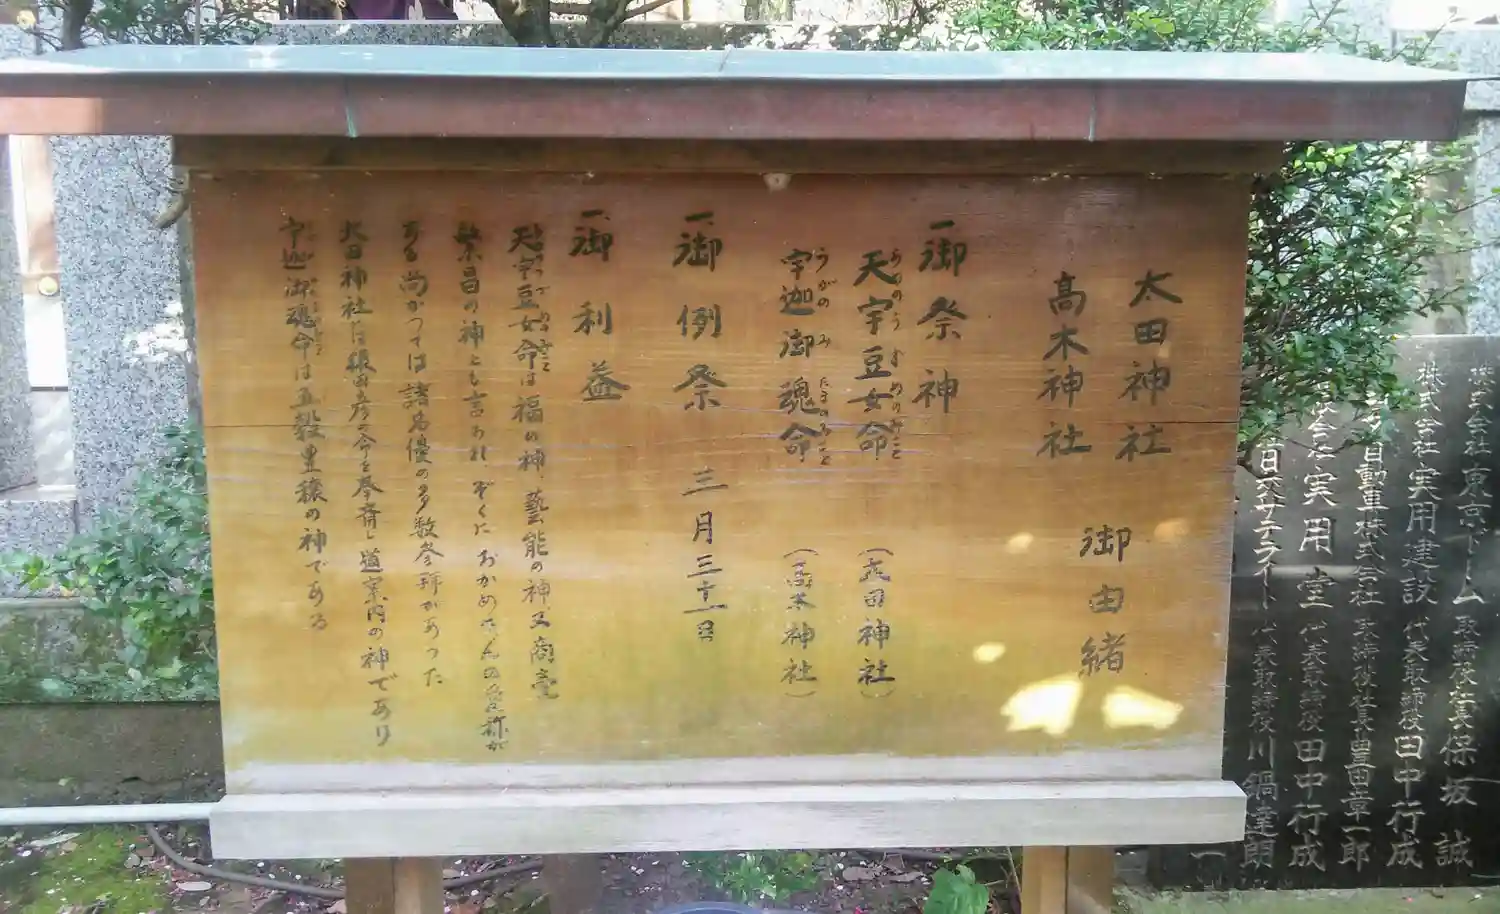 太田神社
高木神社
御由緒
一、御祭神
天宇豆女命 (太田神社)
あめのうずめのみこと
宇迦御魂命 (高木神社)
うがのみたまのみこと
一、御例祭 三月三十一日
一、御利益
天宇豆女命は福の神、藝能の神又商売
繁昌の神とも言われ、ぞくに おかめさんの愛称が
ある 尚かつては諸名優の多数参拝があった
太田神社は猿田彦之命を奉斎し道案内の神であり
宇迦御魂命は五穀豊穣の神である
株式会社 東京ドーム 取締役社長 保坂 誠
株式会社 実用建設 代表取締役 田中行成
自動車株式会社 取締役社長 豊田章一郎
会社 実用堂 代表取締役 田中行成
サテライト 代表取締役 川鍋達朗